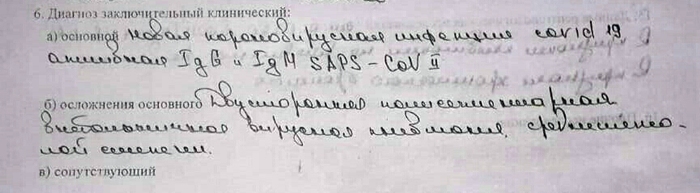 6. Диагноз заключительный клинический:
а) основной Новая коронавирусная инфекция covid 19
активная IgG и IgM SAPS-CoV II
б) осложнения основного Двусторонняя полисегментарная
внебольничная вирусная пневмония, среднетяже-
лой степени.
в) сопутствующий